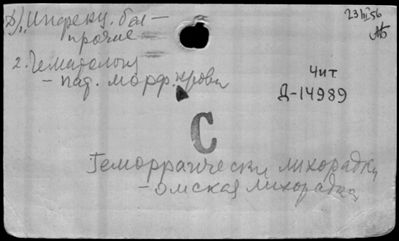 Д/1. Инфекц. бол —
прочие —
23 III 56
2. Гематология
— пат. морф. крови
Чит
Д-14989
С
Геморрагически лихорадки
— омская лихорадка